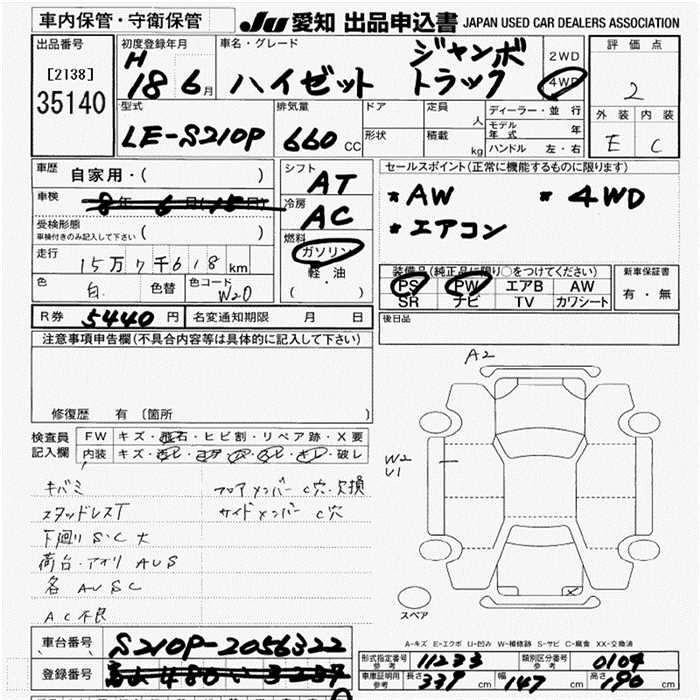 車内保管・守衛保管 JU 愛知 出品申込書 JAPAN USED CAR DEALERS ASSOCIATION
出品番号 初度登録年月 車名・グレード 評価点
[2138]
35140
H
18 6月 ハイゼット ジャンボ トラック 2WD 4WD
2
型式 排気量 ドア 定員 人 ディーラー・並行 外装 内装
LE-S210P 660 CC 形状 積載 kg モデル年式 年 E C
ハンドル 左・右
車歴 自家用・( ) シフト AT セールスポイント(正常に機能するものに限ります)
車検 冷房 AC * AW * 4WD
* エアコン
受検形態 ( )
車検付きのみ記入して下さい
燃料
ガソリン
軽油
( )
走行 15万7千618km 装備品(純正品に限り○をつけてください) 新車保証書
PS PW エアB AW 有・無
色 白 色替 色コード W20 SR ナビ TV カワシート
R券 5440円 名変通知期限 月 日 後日品
注意事項申告欄(不具合内容等は具体的に記入して下さい)
修復歴 有 〔箇所 〕
A2
検査員記入欄 FW キズ・飛石・ヒビ割・リペア跡・X要
内装
W2
U1
キバミ フロアメンバー C穴・欠損
スタッドレスT サイドメンバー C穴
下廻りS・C大
荷台・アオリ AUS
各 AUSC
AC不良
スペア
A-キズ E-エクボ U-凹み W-補修跡 S-サビ C-腐食 XX-交換済
車台番号 S210P-2056322
登録番号
形式指定番号 参考 11233 類別区分番号 参考 0104
車庫証明用 参考 長さ 339cm 幅 147cm 高さ 190cm